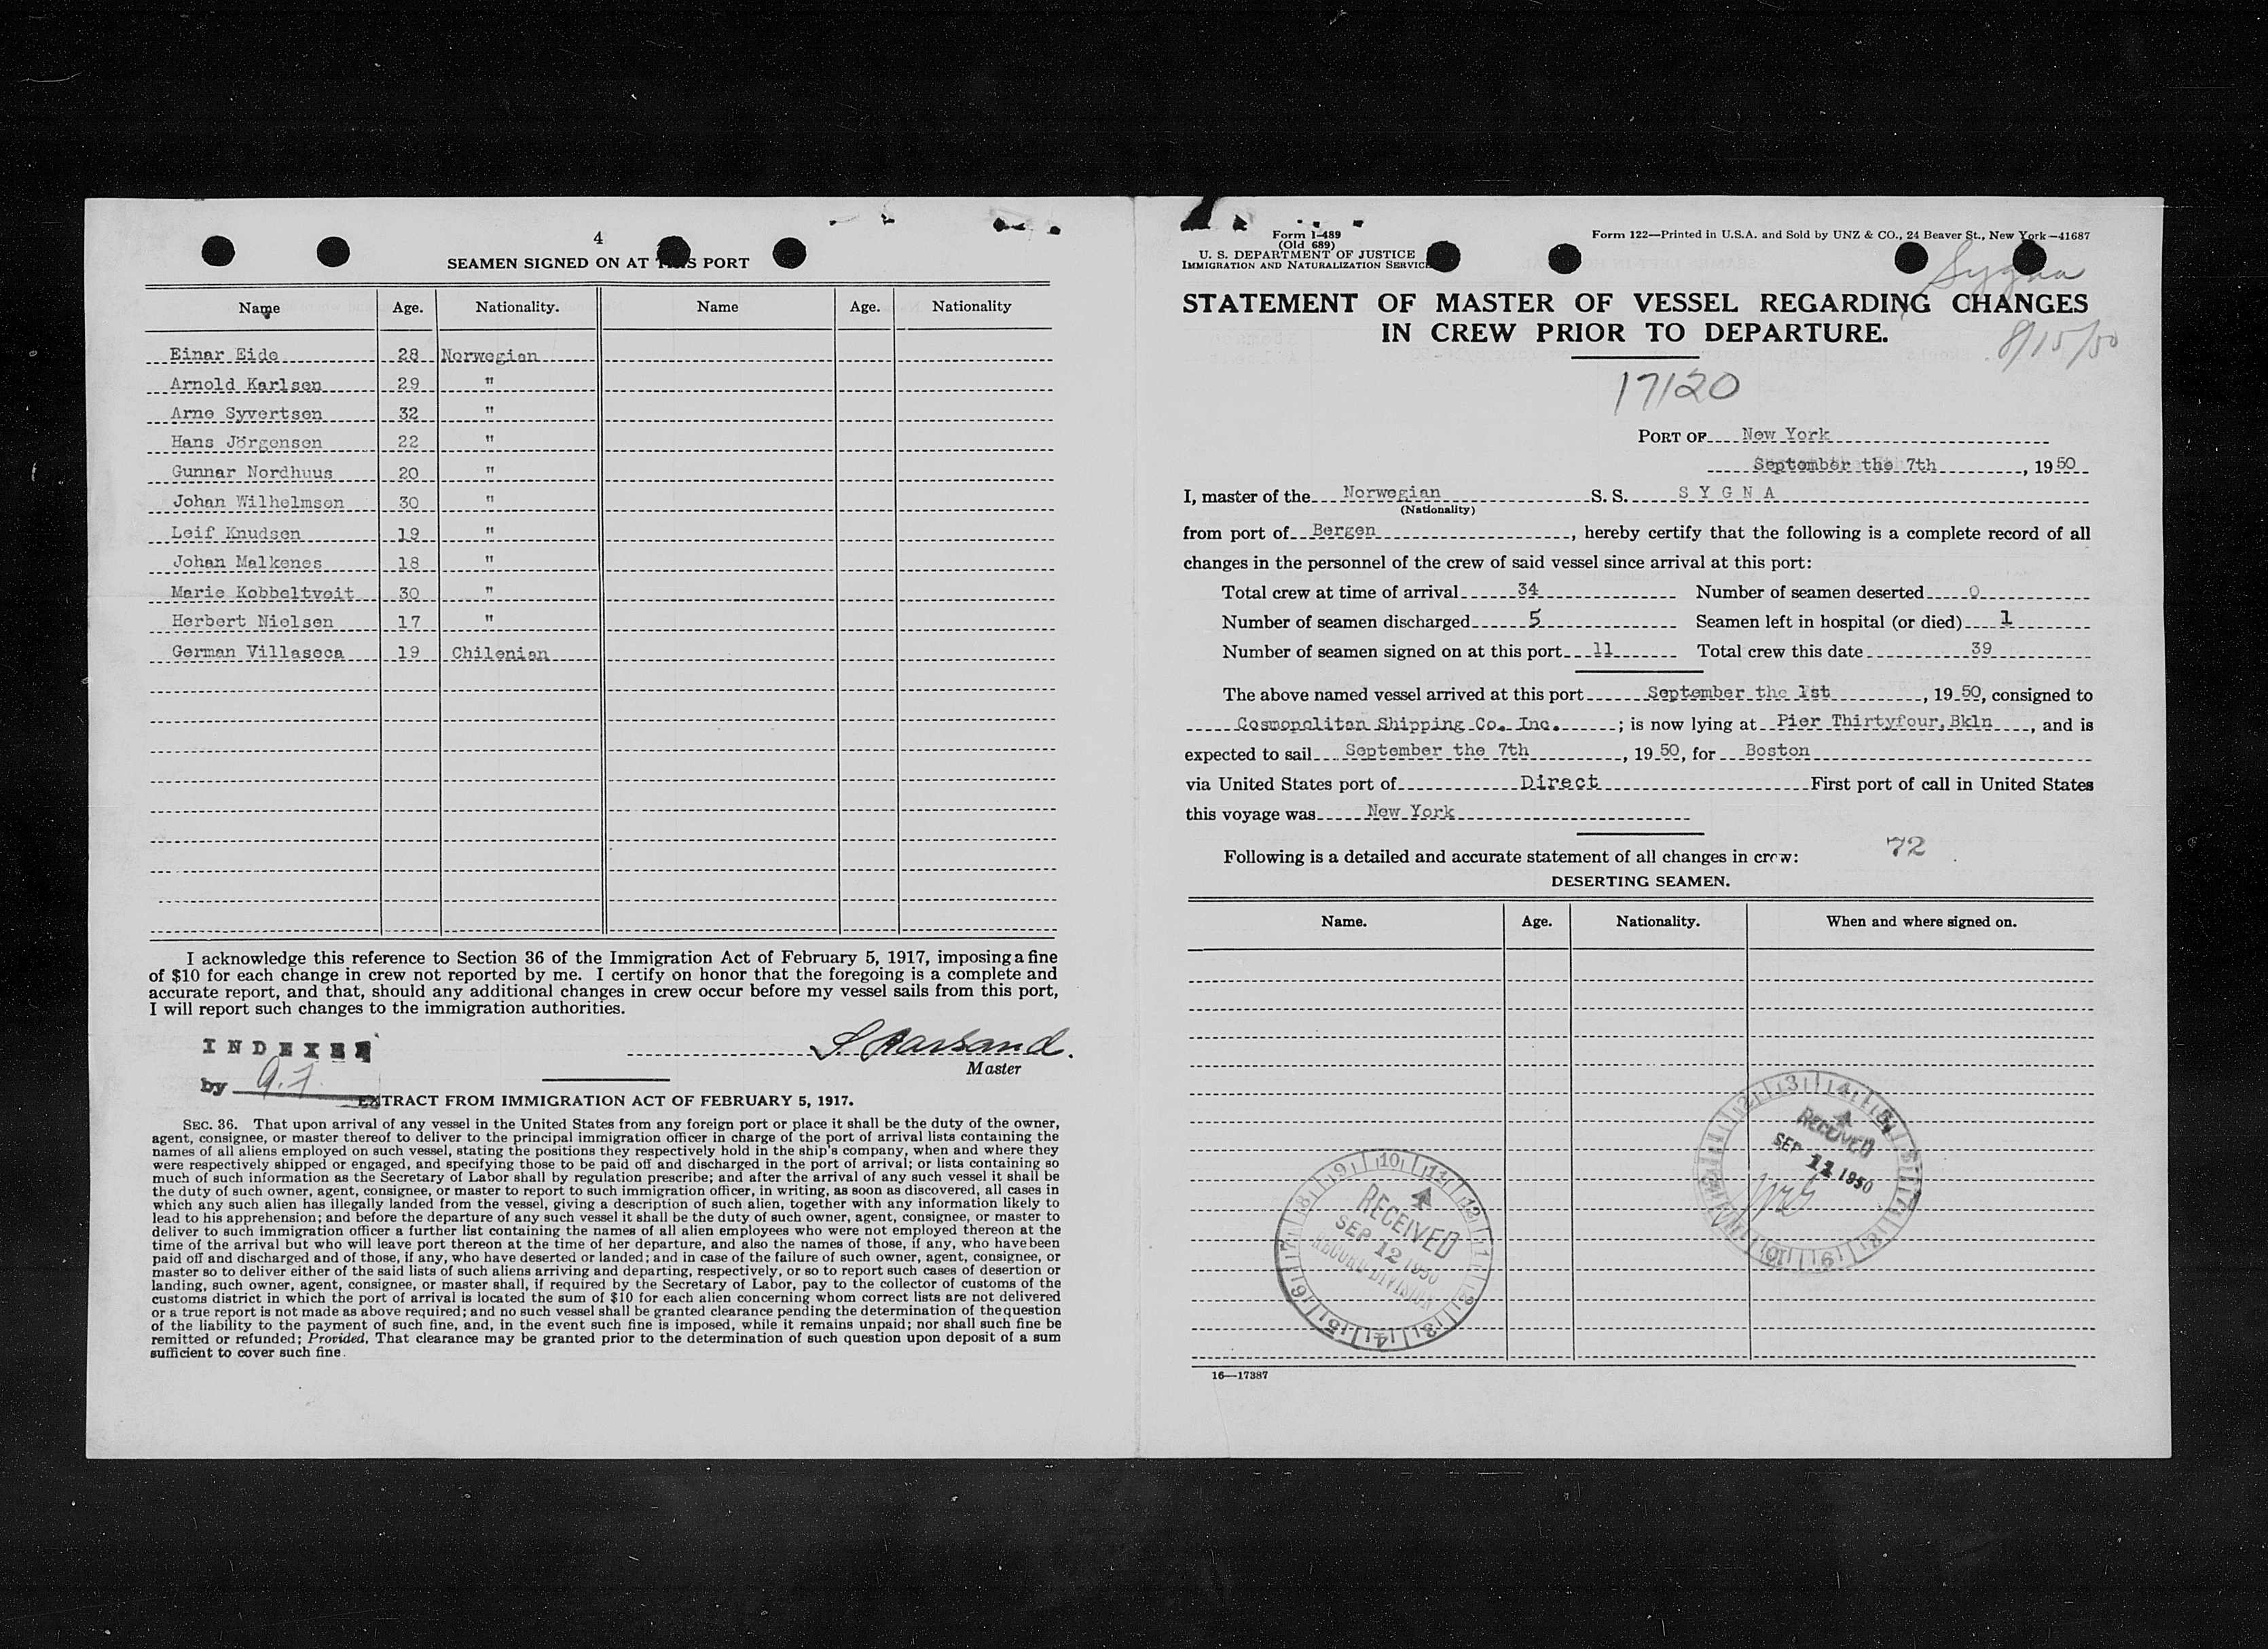 4
SEAMEN SIGNED ON AT THIS PORT
Name Age. Nationality. Name Age. Nationality
Einar Eide 28 Norwegian
Arnold Karlsen 29 "
Arne Syvertsen 32 "
Hans Jörgensen 22 "
Gunnar Nordhuus 20 "
Johan Wilhelmsen 30 "
Leif Knudsen 19 "
Johan Malkenes 18 "
Marie Kobbeltveit 30 "
Herbert Nielsen 17 "
German Villaseca 19 Chilenian
I acknowledge this reference to Section 36 of the Immigration Act of February 5, 1917, imposing a fine
of $10 for each change in crew not reported by me. I certify on honor that the foregoing is a complete and
accurate report, and that, should any additional changes in crew occur before my vessel sails from this port,
I will report such changes to the immigration authorities.
INDEXED
Master
by
EXTRACT FROM IMMIGRATION ACT OF FEBRUARY 5, 1917.
SEC. 36. That upon arrival of any vessel in the United States from any foreign port or place it shall be the duty of the owner,
agent, consignee, or master thereof to deliver to the principal immigration officer in charge of the port of arrival lists containing the
names of all aliens employed on such vessel, stating the positions they respectively hold in the ship's company, when and where they
were respectively shipped or engaged, and specifying those to be paid off and discharged in the port of arrival; or lists containing so
much of such information as the Secretary of Labor shall by regulation prescribe; and after the arrival of any such vessel it shall be
the duty of such owner, agent, consignee, or master to report to such immigration officer, in writing, as soon as discovered, all cases in
which any such alien has illegally landed from the vessel, giving a description of such alien, together with any information likely to
lead to his apprehension; and before the departure of any such vessel it shall be the duty of such owner, agent, consignee, or master to
deliver to such immigration officer a further list containing the names of all alien employees who were not employed thereon at the
time of the arrival but who will leave port thereon at the time of her departure, and also the names of those, if any, who have been
paid off and discharged and of those, if any, who have deserted or landed; and in case of the failure of such owner, agent, consignee, or
master so to deliver either of the said lists of such aliens arriving and departing, respectively, or so to report such cases of desertion or
landing, such owner, agent, consignee, or master shall, if required by the Secretary of Labor, pay to the collector of customs of the
customs district in which the port of arrival is located the sum of $10 for each alien concerning whom correct lists are not delivered
or a true report is not made as above required; and no such vessel shall be granted clearance pending the determination of the question
of the liability to the payment of such fine, and, in the event such fine is imposed, while it remains unpaid; nor shall such fine be
remitted or refunded; Provided, That clearance may be granted prior to the determination of such question upon deposit of a sum
sufficient to cover such fine.
Form I-489
(Old 689)
U. S. DEPARTMENT OF JUSTICE
IMMIGRATION AND NATURALIZATION SERVICE
Form 122—Printed in U.S.A. and Sold by UNZ & CO., 24 Beaver St., New York—41687
Sygna
STATEMENT OF MASTER OF VESSEL REGARDING CHANGES
IN CREW PRIOR TO DEPARTURE.
8/15/50
17120
PORT OF New York
September the 7th, 1950
I, master of the Norwegian S. S. SYGNA
(Nationality)
from port of Bergen, hereby certify that the following is a complete record of all
changes in the personnel of the crew of said vessel since arrival at this port:
Total crew at time of arrival 34 Number of seamen deserted 0
Number of seamen discharged 5 Seamen left in hospital (or died) 1
Number of seamen signed on at this port 11 Total crew this date 39
The above named vessel arrived at this port September the 1st, 1950, consigned to
Cosmopolitan Shipping Co. Inc.; is now lying at Pier Thirtyfour, Bkln, and is
expected to sail September the 7th, 1950, for Boston
via United States port of Direct First port of call in United States
this voyage was New York
72
Following is a detailed and accurate statement of all changes in crew:
DESERTING SEAMEN.
Name. Age. Nationality. When and where signed on.
RECEIVED
SEP 11 1950
RECEIVED
SEP 12 1950
RECORD DIVISION
16—17387